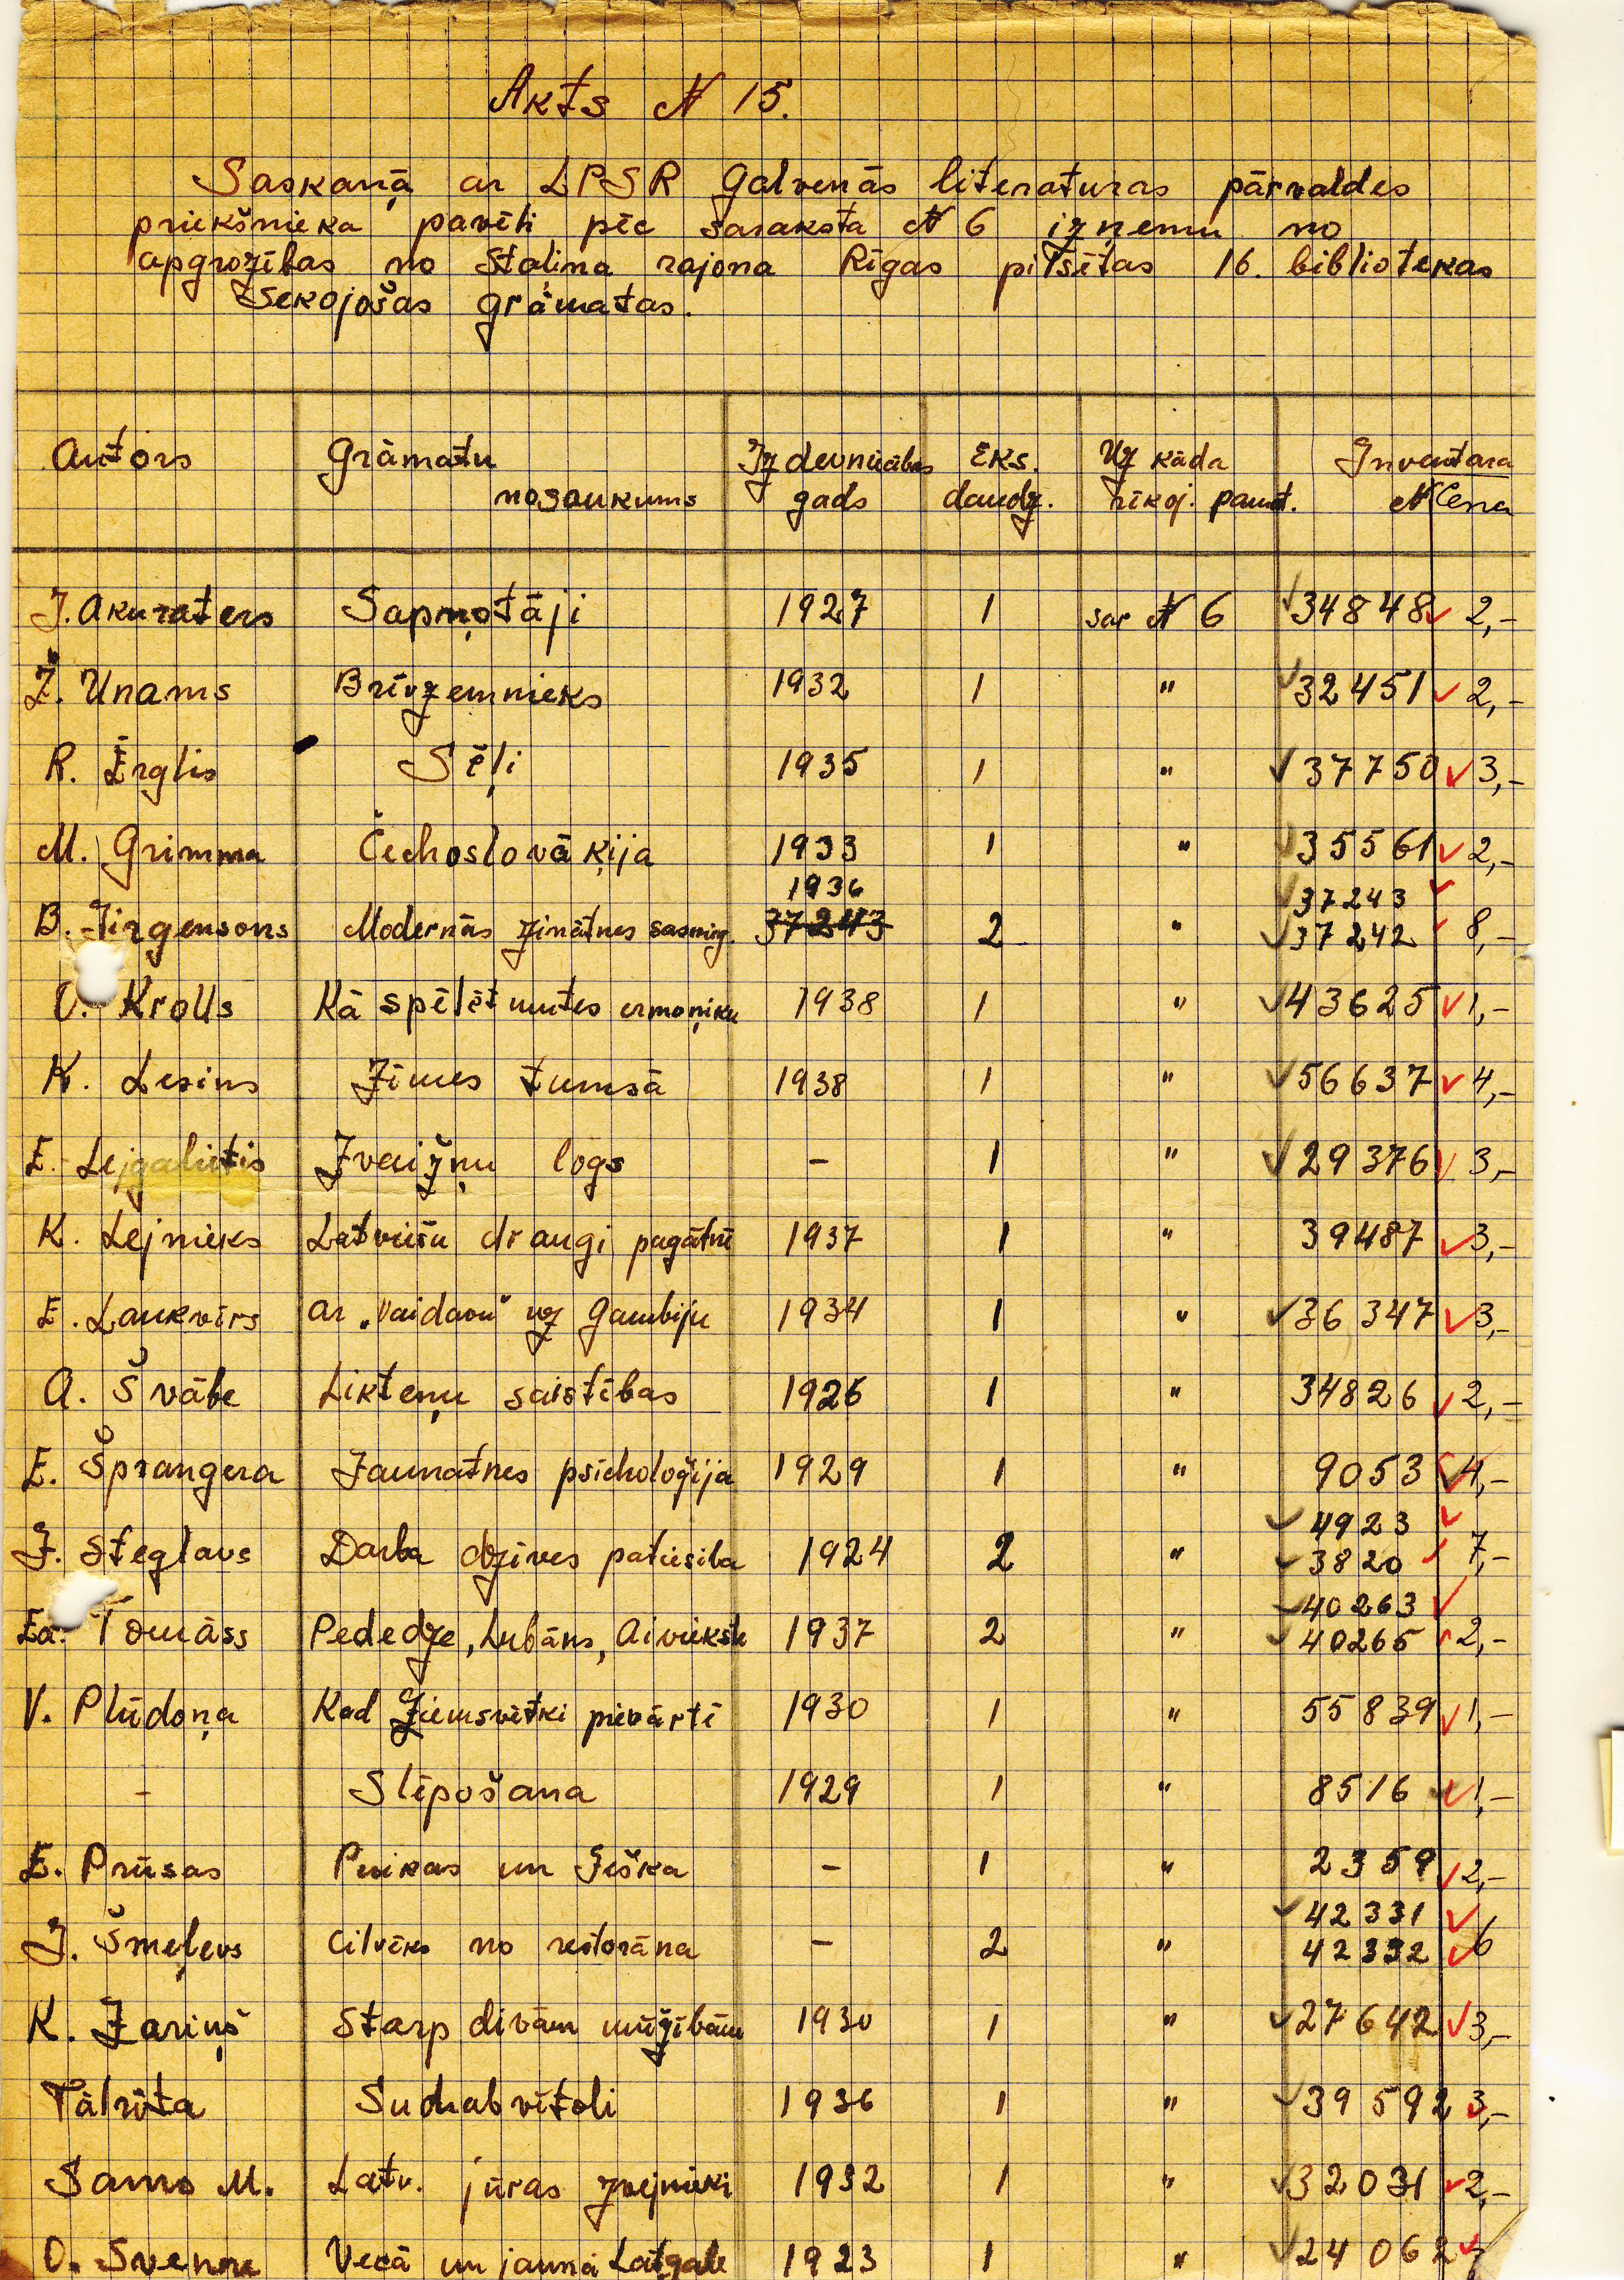 Akts № 15.
Saskaņā ar LPSR Galvenās literaturas pārvaldes
priekšnieka pavēli pēc saraksta № 6 izņemu no
apgrozības no Staļina rajona Rīgas pilsētas 16. bibliotekas
sekojošas grāmatas.
Autors Grāmatu nosaukums Izdevniecības gads Eks. daudz. Uz kāda rīkoj. pamat. Inventara № Cena
J. Akuraters Sapņotāji 1927 1 sar № 6 34848 2,-
Ž. Unams Brīvzemnieks 1932 1 " 32451 2,-
R. Ērglis Sēļi 1935 1 " 37750 3,-
M. Grimma Čechoslovāķija 1933 1 " 35561 2,-
1936 37243
B. Jirgensons Modernās zinātnes sasnieg. 37243 2 " 37242 8,-
Krolls Kā spēlēt mutes ermoņiku 1938 1 " 43625 1,-
K. Lesins Zīmes tumsā 1938 1 " 56637 4,-
E. Lejgalietis Zvaižņu logs - 1 " 29376 3,-
K. Lejnieks Latviešu draugi pagātnē 1937 1 " 39487 3,-
E. Laukvirs Ar „Vaidavu" uz Gambiju 1934 1 " 36347 3,-
A. Švābe Likteņu saistības 1926 1 " 34826 2,-
E. Šprangera Jaunatnes psicholoģija 1929 1 " 9053 4,-
4923
J. Steglavs Darba dzīves patiesiba 1924 2 " 3820 7,-
40263
Ed. Tomāss Pededze, Lubāns, Aiviekste 1937 2 " 40265 2,-
V. Plūdoņa Kad Ziemsvētki pievārtē 1930 1 " 55839 1,-
- Slēpošana 1929 1 " 8516 1,-
E. Prūsas Puikas un Ješka - 1 " 2359 2,-
42331
J. Šmeļevs Cilvēks no restorāna - 2 " 42332 6
K. Zariņš Starp divām mūžībām 1930 1 " 27642 3,-
Tālrīta Sudrab vītoli 1936 1 " 39592 3,-
Sams M. Latv. jūras zvejnieki 1932 1 " 32031 2,-
O. Svenne Vecā un jaunā Latgale 1923 1 " 24062